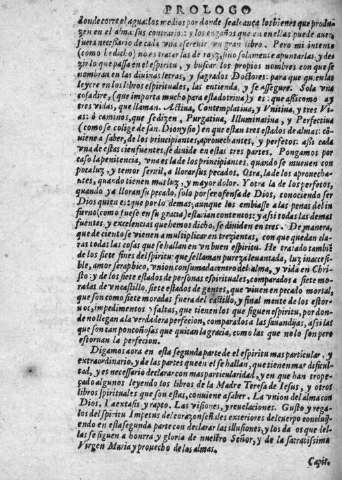 PROLOGO
donde corre el agua: los medios por donde se alcanço los bienes que produ-
zen en el alma sus contrarios: y los engaños que en ellas puede auer
fuera necesario de cada vna escreuir vn gran libro. Pero mi intento
(como he dicho) no es tratarlas de rayz, sino solamente apuntarlas, y de-
zir lo que passa en el spiritu, y buscar los propios nombres con que se
nombran en las diuinas letras, y sagrados Doctores: para que quien las
leyere en los libros espirituales, las entienda, y se assegure. Sola vna
cosa diré, (que importa mucho para esta dotrina) y es: que assi como ay
tres vidas, que llaman, Actiua, Contemplatiua, y Vnitiua, y tres Vi-
as: ò caminos, que se dizen, Purgatiua, Illuminatiua, y Perfectiua
(como se colige de san Dionysio) en que estan tres estados de almas: co-
uiene a saber, de los principiantes, aprouechantes, y perfetos: assi cada
vna de estas cien fuentes, se diuide en estas tres partes. Pongamos por
caso la penitencia, vna es la de los principiantes, quando se mueuen con
poca luz, y temor seruil, a llorar sus pecados. Otra, la de los aprouecha-
tes, quando tienen mas luz, y mayor dolor. Y otra la de los perfetos,
quando ya lloran su pecado, solo por ser ofensa de Dios, conociendo ser
Dios quien es: que por lo demas, aunque los embiasse a las penas del in-
fierno (como fuesse en su gracia) estarian contentos: y assi todas las demas
fuentes, y excelencias que hemos dicho, se diuiden en tres. De manera,
que de ciento se vienen a multiplicar en trezientas, con que quedan cla-
ras todas las cosas que se hallan en vn buen espiritu. He tratado tambiē
de los siete fines del spiritu: que se llaman pureza leuantada, luz inacces-
sible, amor seraphico, vnion consumada, centro del alma, y vida en Chris-
to: y de los siete estados de personas espirituales, comparados a siete mo-
radas de vn castillo, siete estados de gentes, que viuen en pecado mortal,
que son como siete moradas fuera del castillo, y final mente de los estor-
uos, impedimentos y faltas, que tienen los que siguen espiritu, por don-
de no llegan a la verdadera perfecion, comparados a las sauandijas, assi las
que son tan ponçoñosas que quitan la gracia, como las que no lo son pero
estoruan la perfecion.
Digamos aora en esta segunda parte de el espiritu mas particular, y
extraordinario, y de las partes que en el se hallan, que tienen mas dificul-
tad, y es necesario declarar con mas particularidad, y en que han trope-
çado algunos leyendo los libros de la Madre Teresa de Iesus, y otros
libros spirituales que son estas, conuiene a saber. La vnion del alma con
Dios. La extasis y rapto. Las visiones, y reuelaciones. Gusto y rega-
los del spiritu Impetus de coraçon, señales exteriores del cuerpo concluyē-
do en esta segunda parte con declarar las illusiones, y los daños que de-
llas se siguen a honrra y gloria de nuestro Señor, y de la sacratissima
Virgen Maria y prouecho de las almas.
Capit.